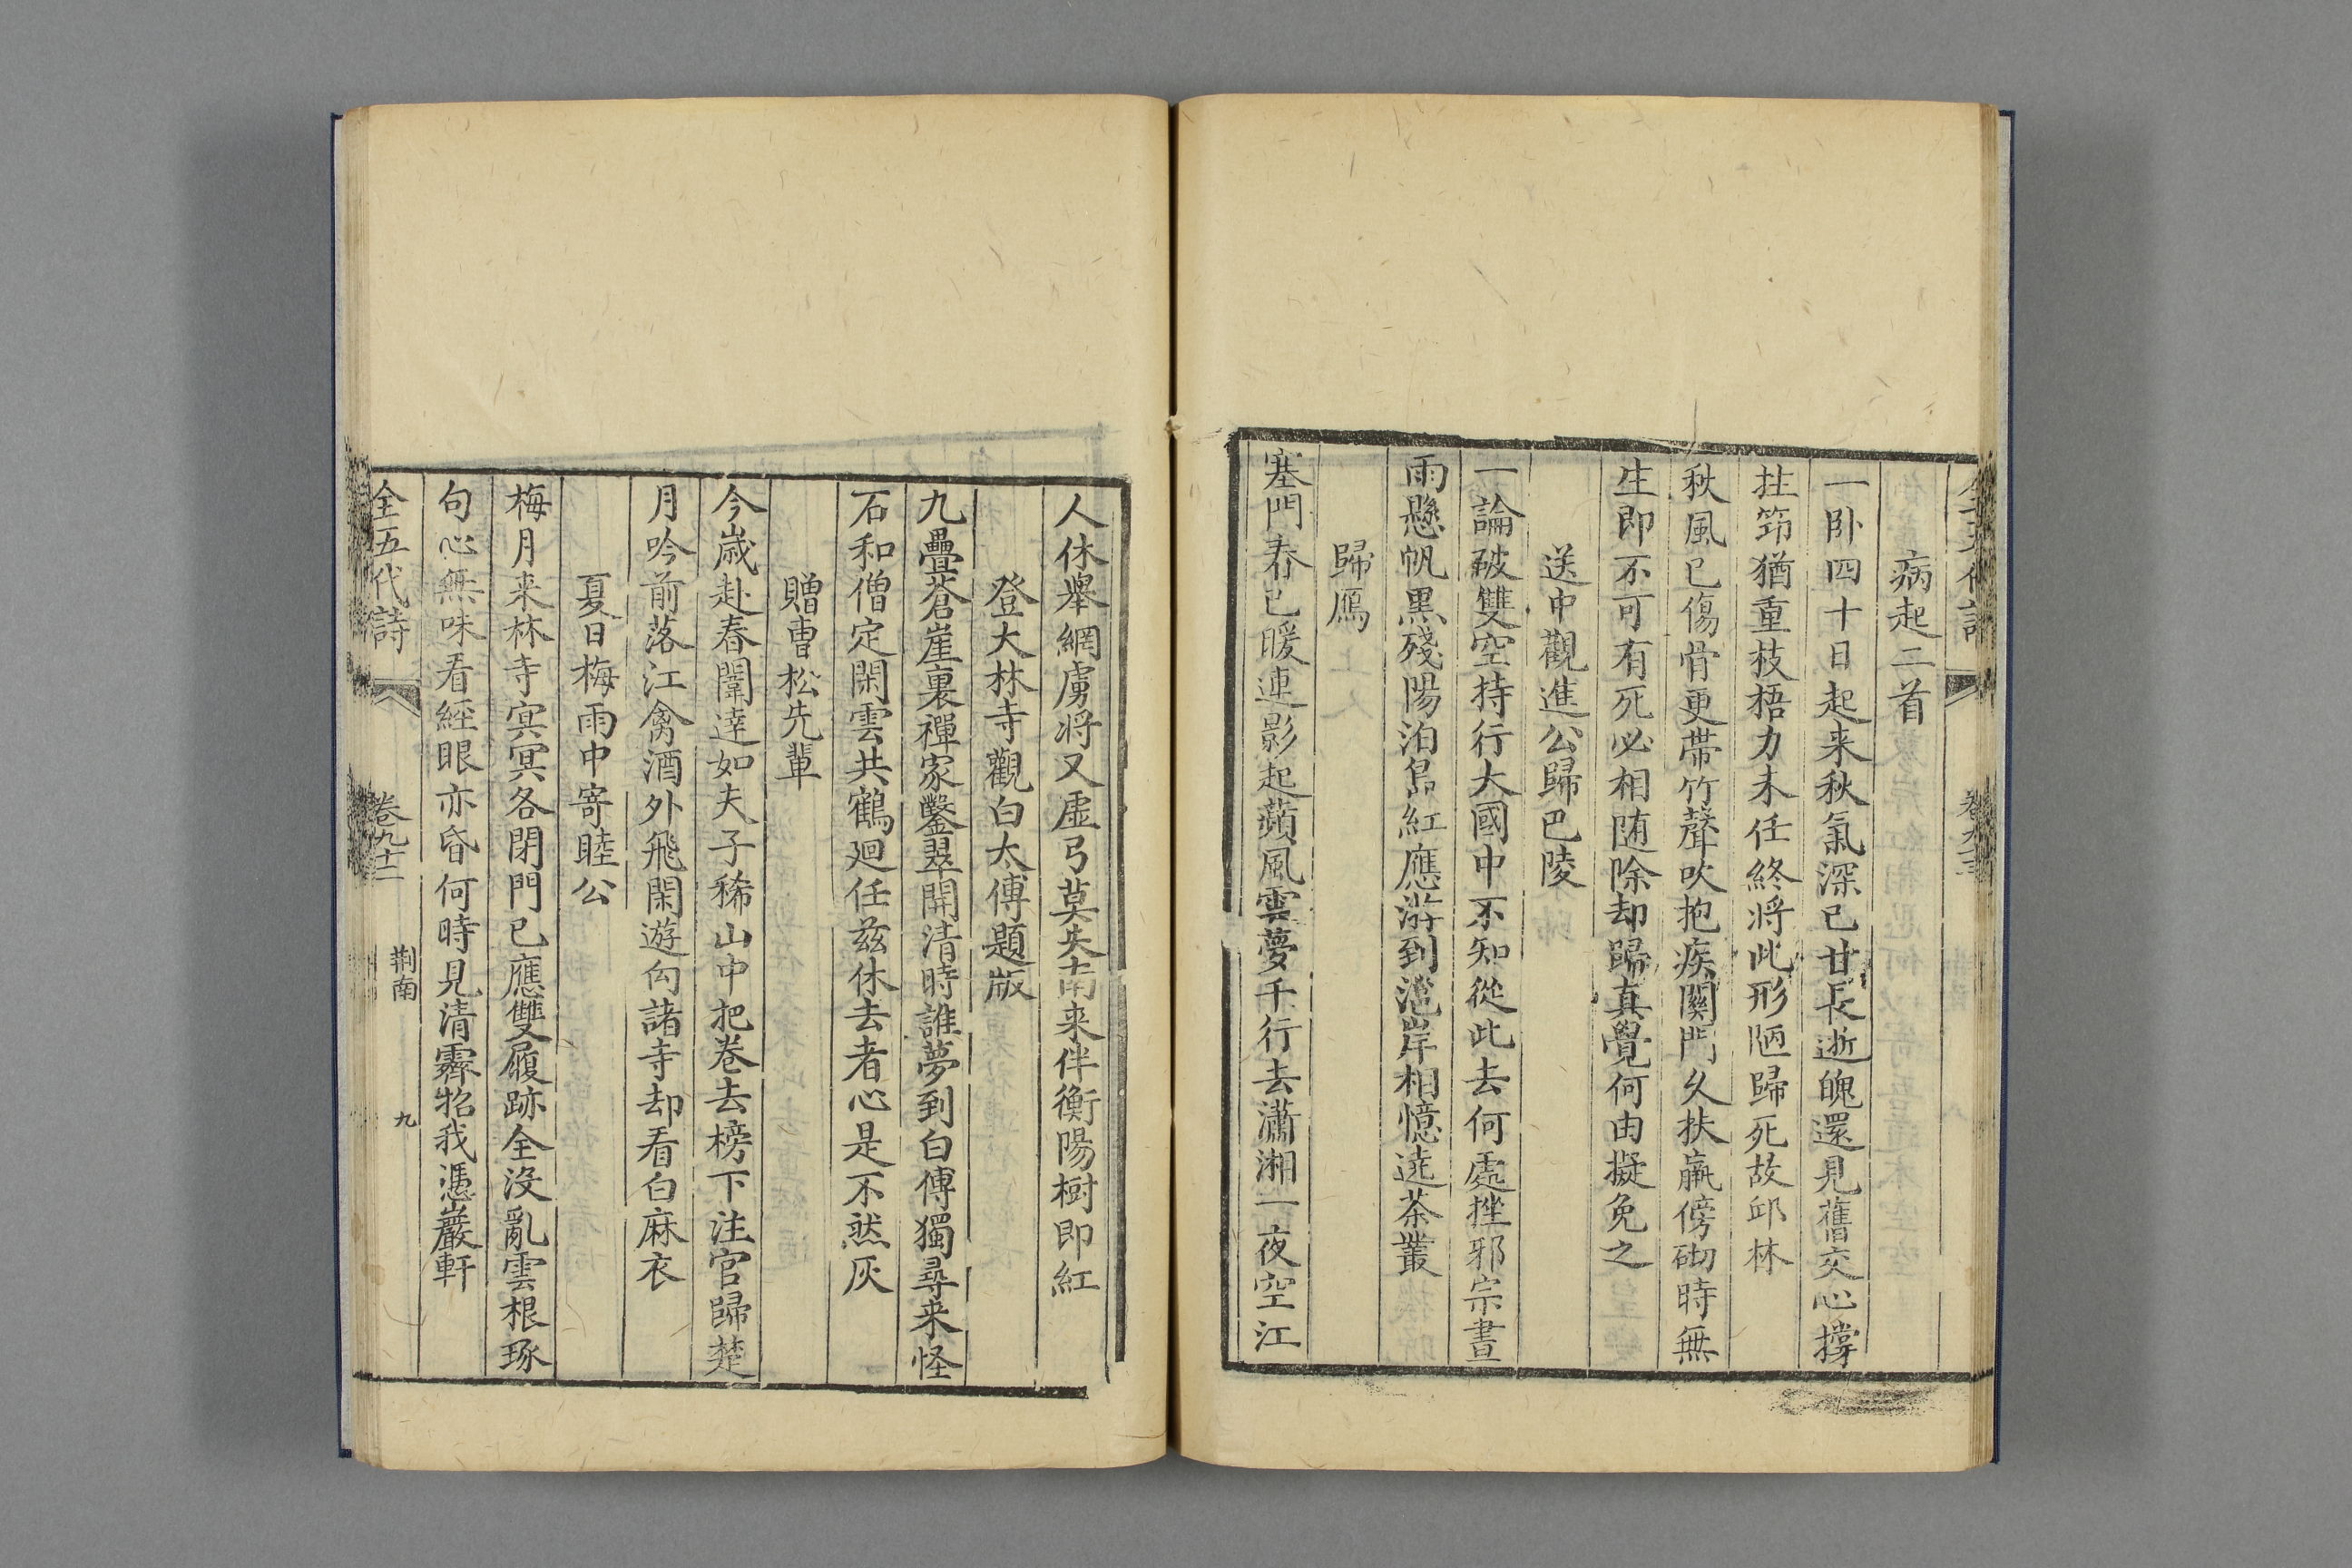 病起二首
一卧四十日起来秋氣深已甘長逝魄還見舊交心撐
拄筇猶重枝梧力未任終將此形陋歸死故邱林
秋風已傷骨更帶竹聲吹抱疾關門久扶羸傍砌時無
生即不可有死必相随除却歸真覺何由擬免之
送中觀進公歸巴陵
一論破雙空持行大國中不知從此去何處挫邪宗晝
雨懸帆黒殘陽泊島紅應游到灉岸相憶遶茶叢
歸鴈
塞門春已暖連影起蘋風雲夢千行去瀟湘一夜空江
人休舉網虜将又虛弓莫失南来伴衡陽樹即紅
登大林寺觀白太傅題版
九疊蒼崖裏禪家鑿翠開清時誰夢到白傅獨尋来怪
石和僧定閑雲共鶴廻任兹休去者心是不然灰
贈曹松先輩
今歳赴春闈達如夫子稀山中把卷去榜下注官歸楚
月吟前落江禽酒外飛閑遊向諸寺却看白麻衣
夏日梅雨中寄睦公
梅月来林寺冥冥各閉門已應雙履跡全没亂雲根琢
句心無味看經眼亦昏何時見清霽招我憑巖軒
全五代詩 卷九十二 荆南 九